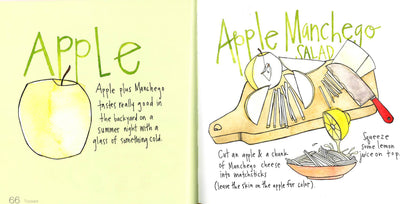 APPLE
Apple plus Manchego
tastes really good in
the backyard on a
summer night with a
glass of something cold.
66
Apple Manchego
SALAD
Cut an apple & a chunk
of Manchego cheese
into matchsticks
(leave the skin on the apple for color).
Squeeze
some lemon
juice on top.